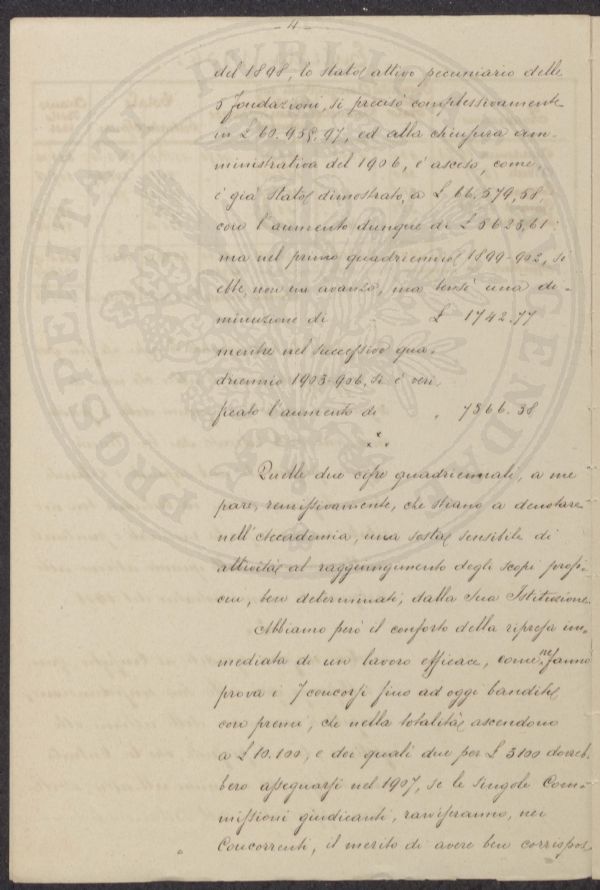 - 4 -
del 1898, lo stato attivo pecuniario delle
5 fondazioni, si precisò complessivamente
in £ 60.955.97, ed alla chiusura am-
ministrativa del 1906, è asceso, come,
è già stato dimostrato, a £ 66.579,58,
coro l'aumento dunque di £ 5623,61:
ma nel primo quadriennio 1899-902, si
ebbe, non un avanzo, ma bensì una di-
minuzione di £ 1742.77
mentre nel successivo qua-
driennio 1903-906, si è veri-
ficato l'aumento di " 7366.38
Quelle due cifre quadriennali, a me
pare, remissivamente, che stiano a denotare
nell'Accademia, una sosta sensibile di
attività al raggiungimento degli scopi propi-
cui, ben determinati, dalla Sua Istituzione.
Abbiamo però il conforto della ripresa im-
mediata di un lavoro efficace, come ne fanno
prova i 7 concorsi fino ad oggi banditi
con premi, che nella totalità ascendono
a £ 10.100, e dei quali due per £ 3100 dovreb-
bero assegnarsi nel 1907, se le singole Com-
missioni giudicanti, ravviseranno, nei
Concorrenti, il merito di avere ben corrispos
PROSPERITATI PUBLICAE AUGENDAE